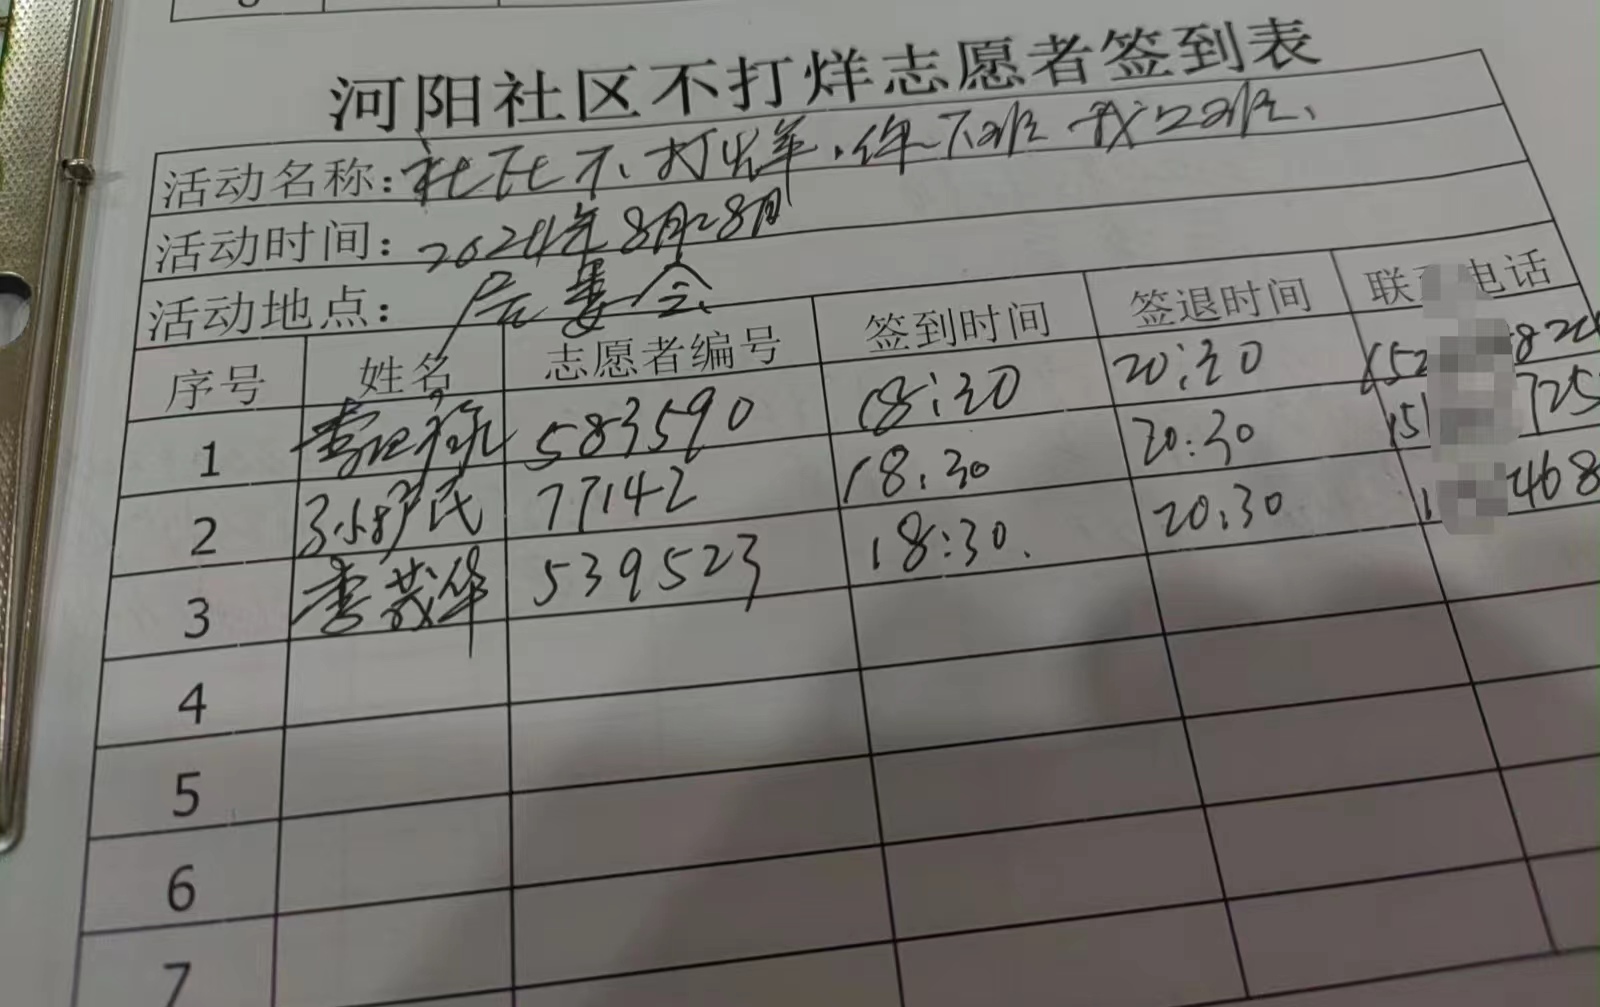 河阳社区不打烊志愿者签到表
活动名称:社区不打烊,你下班 我上班、
活动时间:2024年8月28日
活动地点:居委会
序号 姓名 志愿者编号 签到时间 签退时间 联 电话
1 583590 18:30 20:30 152 82
2 77142 18:30 20:30 151 725
3 李茂华 539523 18:30. 20:30 1 2468
4
5
6
7